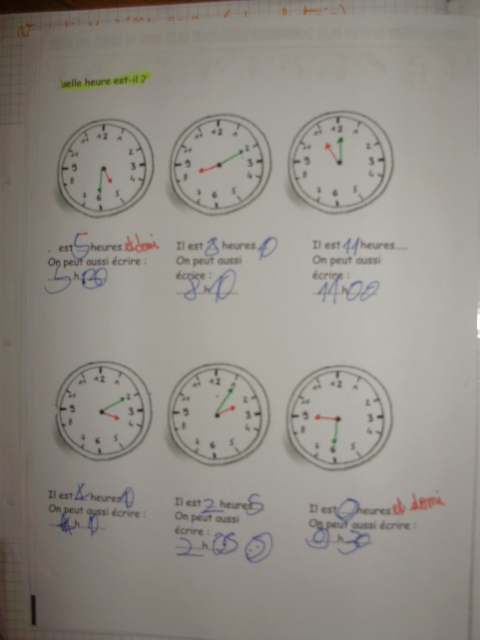 uelle heure est-il ?
est 5 heures et demi
On peut aussi écrire :
5 h
Il est 8 heures 10
On peut aussi
écrire :
8 h 10
Il est 11 heures
On peut aussi
écrire :
11 h 00
Il est 4 heures 10
On peut aussi écrire :
4 h 10
Il est 2 heures 5
On peut aussi
écrire :
2 h 05
Il est 9 heures et demi
On peut aussi écrire :
9 h 30